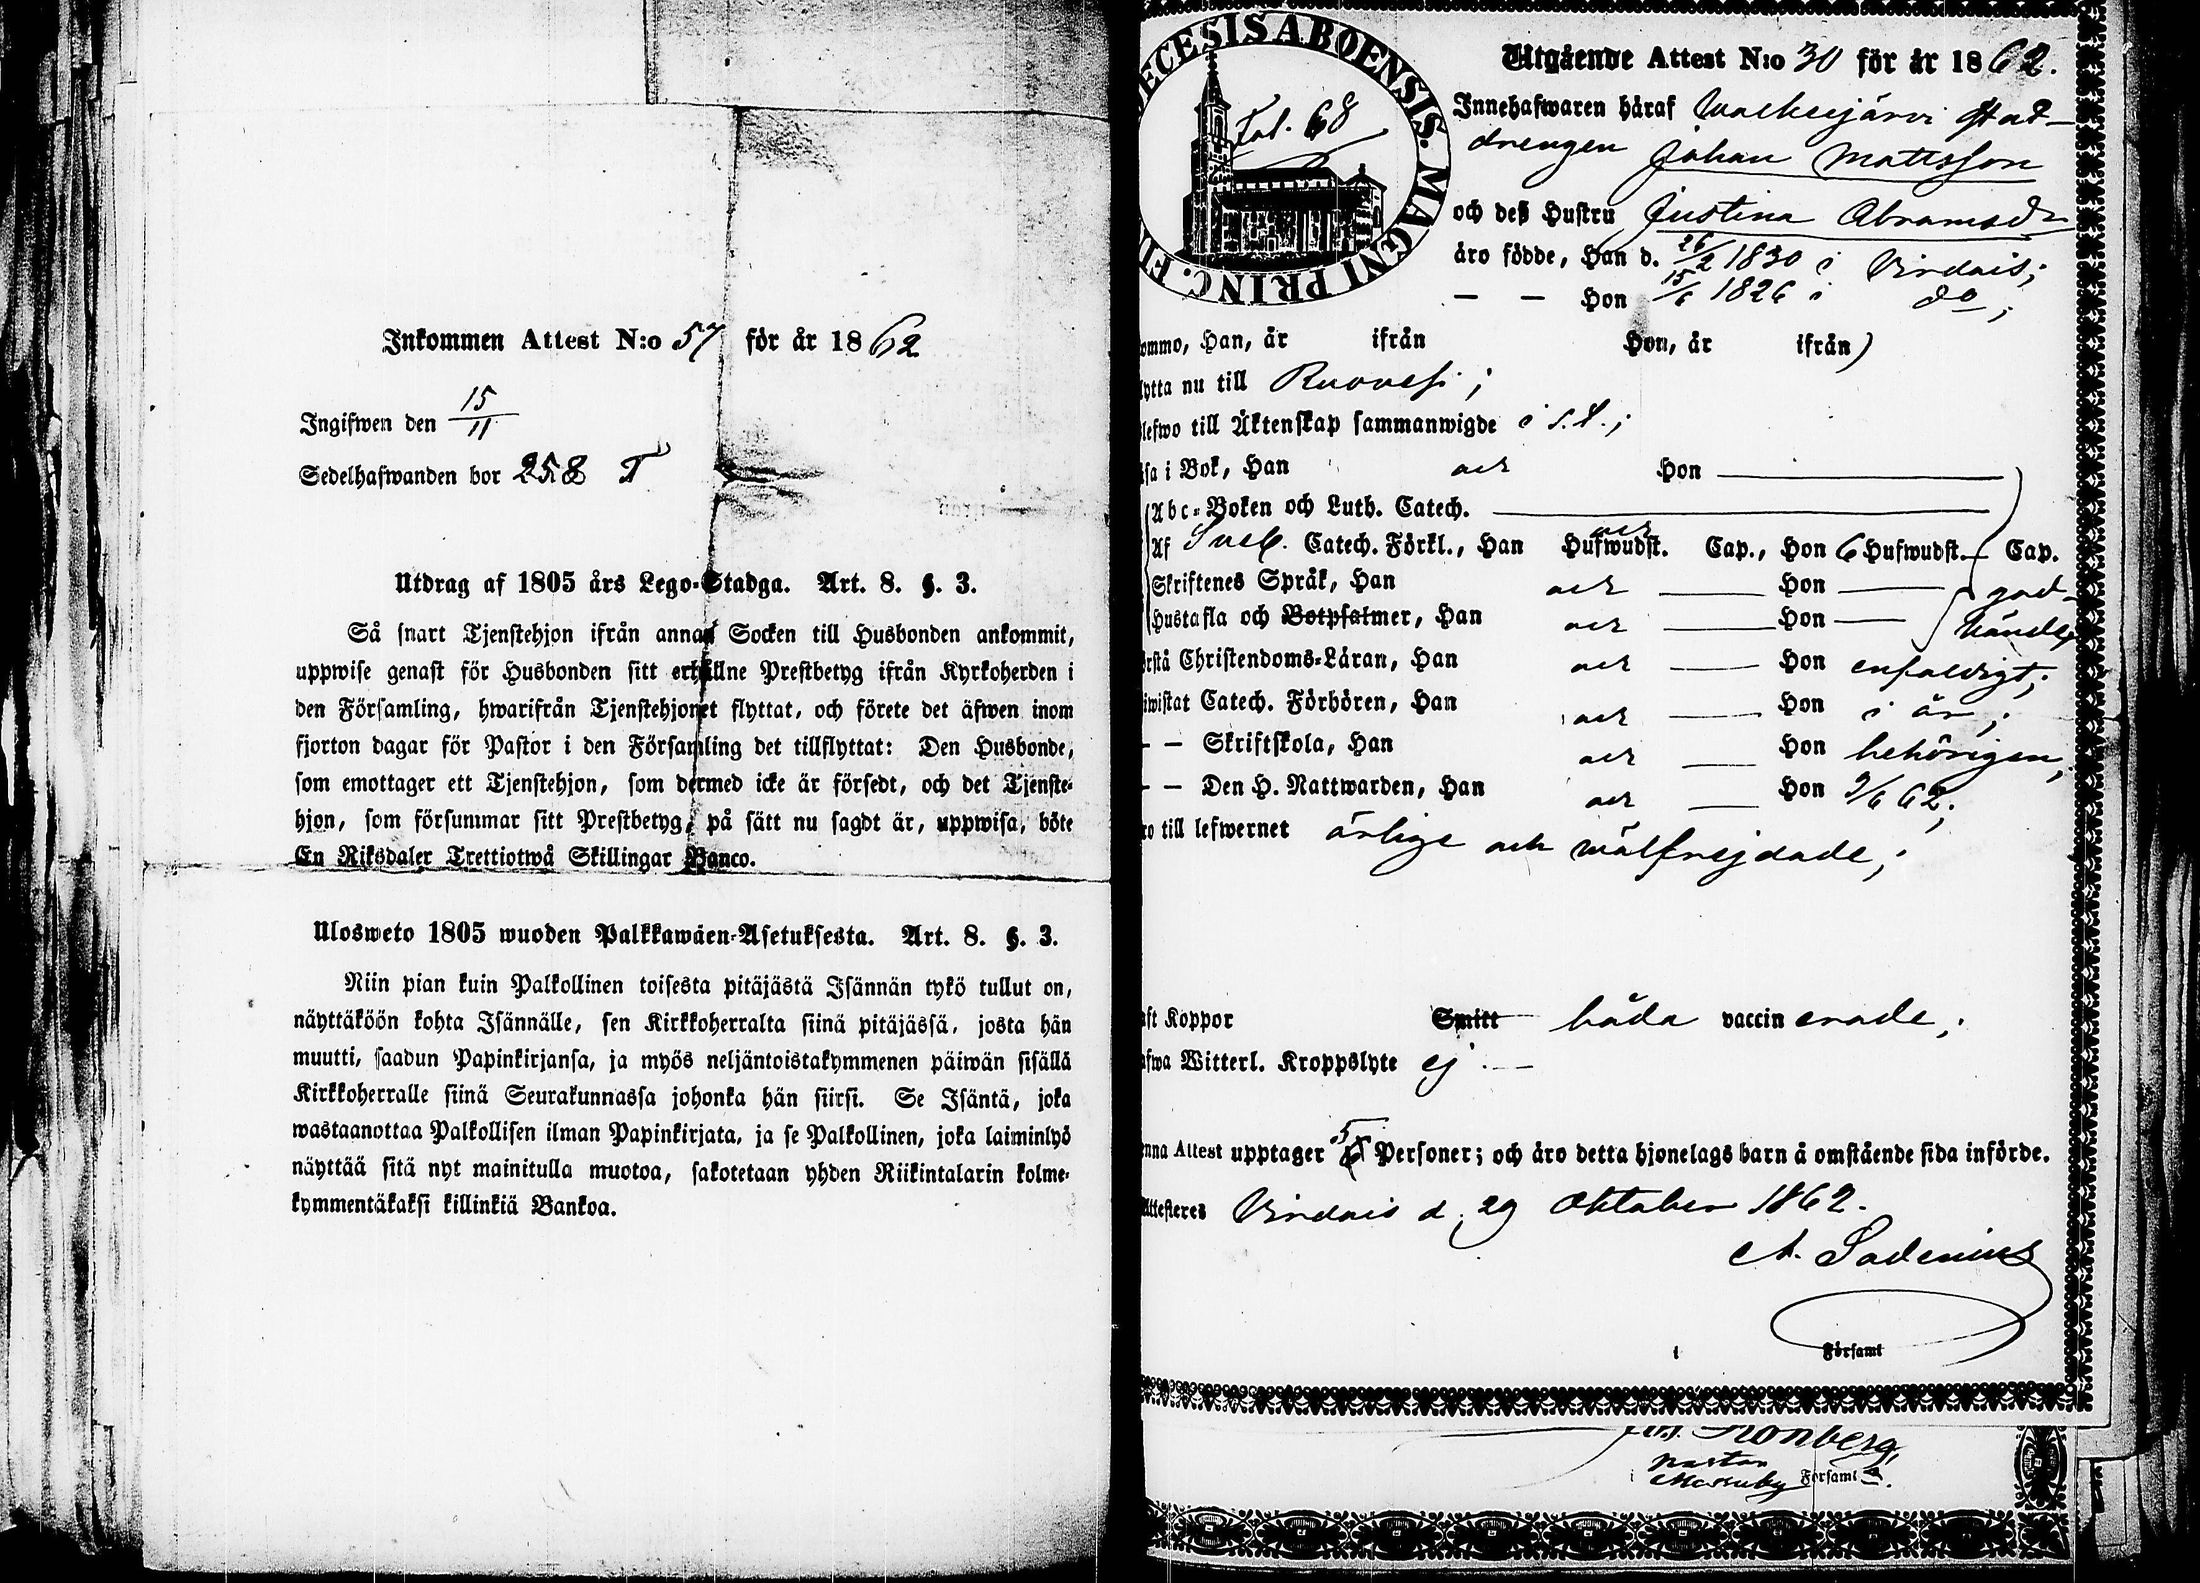 Inkommen Attest N:o 57 för år 1862
Ingifwen den 15/11
Sedelhafwanden bor 258 T
Utdrag af 1805 års Lego-Stadga. Art. 8. §. 3.
Så snart Tjenstehjon ifrån annan Socken till Husbonden ankommit,
uppwise genast för Husbonden sitt erhållne Prestbetyg ifrån Kyrkoherden i
den Församling, hwarifrån Tjenstehjonet flyttat, och förete det äfwen inom
fjorton dagar för Pastor i den Församling det tillflyttat: Den Husbonde,
som emottager ett Tjenstehjon, som dermed icke är försedt, och det Tjenste-
hjon, som försummar sitt Prestbetyg, på sätt nu sagdt är, uppwisa, böte
En Riksdaler Trettiotwå Skillingar Banco.
Ulosweto 1805 wuoden Palkkawäen-Asetuksesta. Art. 8. §. 3.
Niin pian kuin Palkollinen toisesta pitäjästä Isännän tykö tullut on,
näyttäköön kohta Isännälle, sen Kirkkoherralta siinä pitäjässä, josta hän
muutti, saadun Papinkirjansa, ja myös neljäntoistakymmenen päiwän sisällä
Kirkkoherralle siinä Seurakunnassa johonka hän siirsi. Se Isäntä, joka
wastaanottaa Palkollisen ilman Papinkirjata, ja se Palkollinen, joka laiminlyö
näyttää sitä nyt mainitulla muotoa, sakotetaan yhden Riikintalarin kolme-
kymmentäkaksi killinkiä Bankoa.
ECESIS ABOENSIS. MAGNI PRINC. FI
Fol. 68
Utgående Attest N:o 30 för år 1862.
Innehafwaren häraf Waskejärvi Stat-
drengen Johan Mattsson
och deß Hustru Justina Abramsdr
äro födde, Han d. 26/2 1830 i Virdois;
— — Hon 15/6 1826 i do;
ommo, Han, år ifrån Hon, år ifrån)
lytta nu till Ruovesi;
lefwo till Äktenskap sammanwigde i s. l.;
äsa i Bok, Han och Hon —
Abc-Boken och Luth. Catech. —
Af Sveb. Catech. Förkl., Han och Hufwudst. Cap., Hon 6 Hufwudst. — Cap.
Skriftenes Språk, Han och — Hon — god-
Hustafla och Botpsalmer, Han och — Hon — kände;
örstå Christendoms-Läran, Han och — Hon enfaldigt;
iwistat Catech. Förhören, Han och — Hon i år;
— — Skriftskola, Han och — Hon behörigen;
— — Den H. Nattwarden, Han och — Hon 9/6 62;
ro till lefwernet ärlige och wälfrejdade;
aft Koppor Smitt båda vaccinerade;
afwa Witterl. Kroppslyte ej. —
enna Attest upptager 5 Personer; och äro detta hjonelags barn å omstående sida införde.
Attesteres Virdois d. 29 Oktober 1862.
A. Sadenius
i Församl
Kronberg,
Pastor
i Församl.